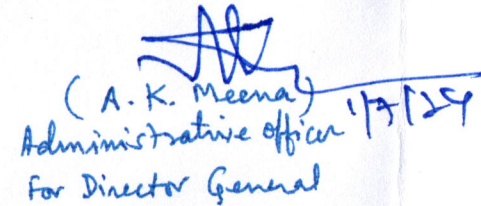 (A. K. Meena)
Administrative officer 1/7/24
For Director General